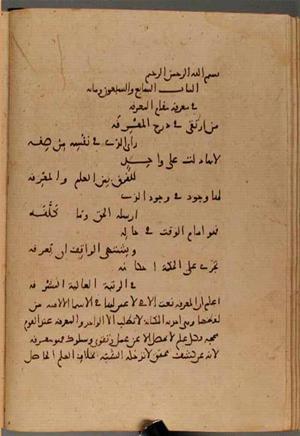 بسم الله الرحمن الرحيم
الباب السابع والسبعون ومائة
في معرفة مقام المعرفة
من ارتقى في درج المعرفة
رأى الذي في نفسه من صفه
لأنها دلت على واحد
للفرق بين العلم والمعرفة
لها وجود في وجود الذي
ارسله الحق وما كلفه
فهو امام الوقت في حاله
ويشتهي الواقف ان يعرفه
تجري على الحكمة احكامه
في الرتبة العالية المشرفه
اعلم ان المعرفة نعت الاهي لا عين لها في الاسما الالاهية من
لفظها وهي احدية المكانة لا تطلب الا الواحد والمعرفة عند القوم
محجة فكل علم لا يحصل الا عن عمل وتقوى وسلوك فهو معرفة
لانه عن كشف محقق لا تدخله الشبه بخلاف العلم الحاصل